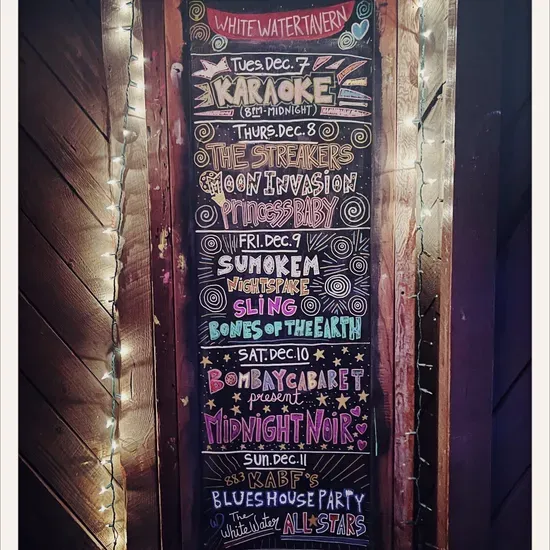 WHITE WATER TAVERN
TUES. DEC. 7
KARAOKE
(8PM-MIDNIGHT)
THURS. DEC. 8
THE STREAKERS
MOON INVASION
PRINCESS BABY
FRI. DEC. 9
SUMOKEM
NIGHTSPAKE
SLING
BONES OF THE EARTH
SAT. DEC. 10
BOMBAY CABARET
present
MIDNIGHT NOIR
SUN. DEC. 11
88.3 KABF'S
BLUES HOUSE PARTY
W/ The White Water ALL STARS